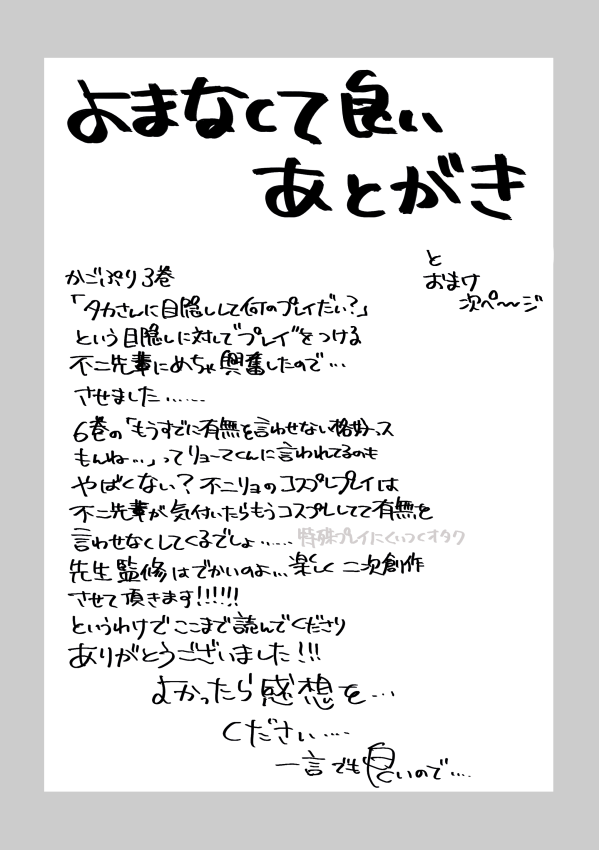 よまなくて良い
あとがき
と
おまけ
次ペ〜ジ
かごぷり3巻
「タカさんに目隠しして何のプレイだい?」
という目隠しに対して"プレイ"をつける
不二先輩にめちゃ興奮したので…
させました……
6巻の「もうすでに有無を言わせない格好っス
もんね…」ってリョーマくんに言われてるのも
やばくない?不二リョのコスプレプレイは
不二先輩が気付いたらもうコスプレしてて有無を
言わせなくしてくるでしょ……特殊プレイにくいつくオタク
先生監修はでかいのよ…楽しく二次創作
させて頂きます!!!!!!
というわけでここまで読んでくださり
ありがとうございました!!!
よかったら感想を…
ください….
一言でも良いので….